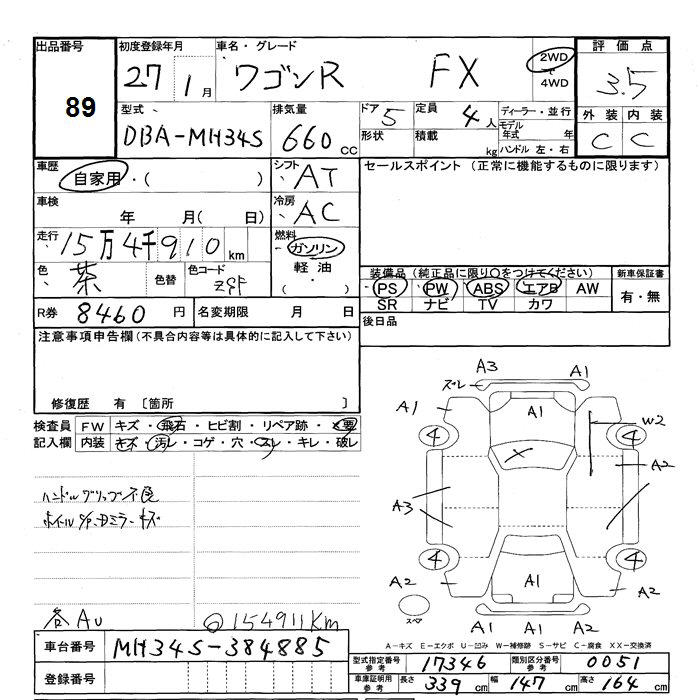 出品番号 初度登録年月 車名・グレード 評価点
89 27 1月 ワゴンR FX 2WD 4WD 3.5
型式 排気量 ドア 5 定員 4人 ディーラー・並行 外装 内装
DBA-MH34S 660cc 形状 積載 kg モデル年式 年 C C
ハンドル 左・右
車歴 シフト セールスポイント (正常に機能するものに限ります)
自家用・( ) AT
車検 冷房
年 月( 日) AC
走行 燃料
15万4千910km ガソリン
色 色替 色コード 軽油 装備品 (純正品に限り○をつけてください) 新車保証書
茶 Z9F ・( ) PS PW ABS エアB AW 有・無
SR ナビ TV カワ
R券 8460円 名変期限 月 日 後日品
注意事項申告欄(不具合内容等は具体的に記入して下さい)
修復歴 有 〔箇所 〕
検査員 FW キズ・飛石・ヒビ割・リペア跡・×要
記入欄 内装 キズ・汚レ・コゲ・穴・スレ・キレ・破レ
ハンドルグリップ不良
ホイルC/P.Dミラーキズ
各AU ◎154911Km
A3 A1
ズレ
A1 A1 W2
4 4
A2
A3
4 4
A2 A1 A2
スペア
A1 A1 A2
A-キズ E-エクボ U-凹み W-補修跡 S-サビ C-腐食 XX-交換済
車台番号 MH34S-384885
登録番号
型式指定番号 参考 17346 類別区分番号 参考 0051
車庫証明用 参考 長さ 339cm 幅 147cm 高さ 164cm